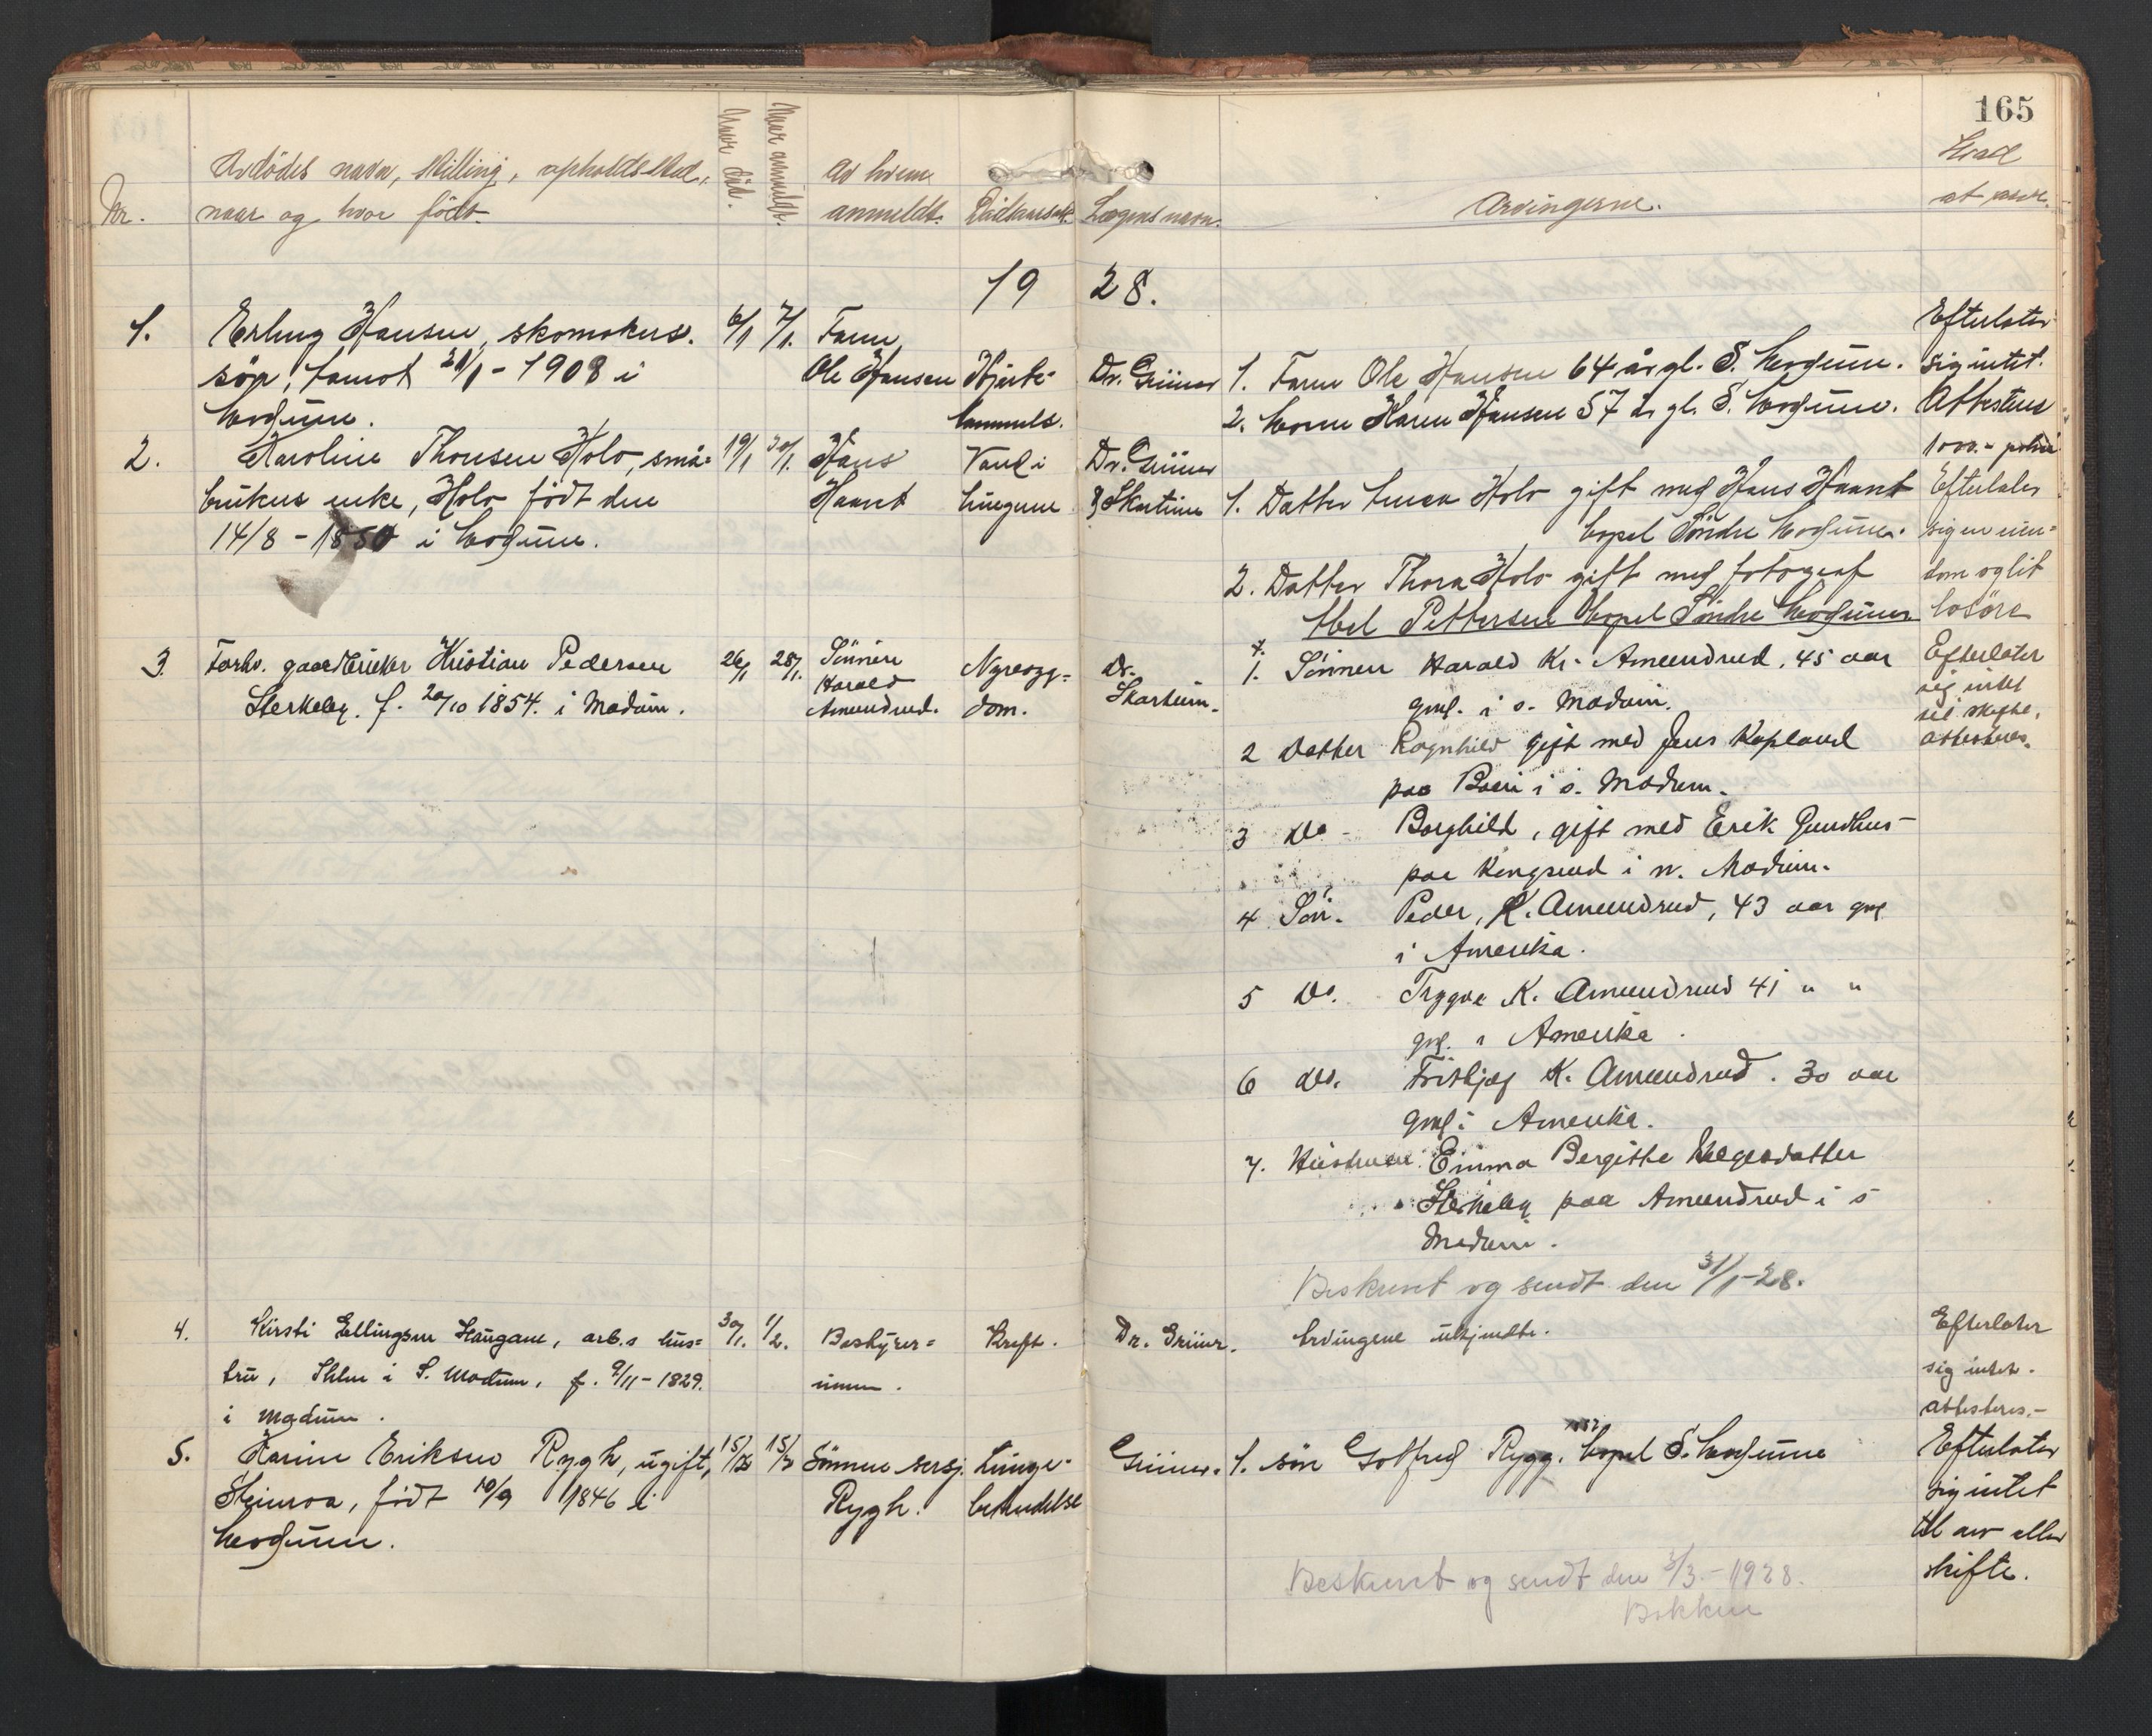 165
Nr.
Avdödes navn, stilling, opholdssted,
naar og hvor født.
Naar död.
Naar anmeldt.
Av hvem
anmeldt.
Dödsarsak.
Lægens navn.
Arvingerne.
Hvad
at arve.
19 28.
1.
Erling Hansen, skomakers.
søn, 21/1 - 1908 i
Modum.
6/1
7/1.
Faren
Ole Hansen
Hjerte-
lammelse.
Dr. Grüner
1. Faren Ole Hansen 64 år gl. S. Modum.
2. Moren Karen Hansen 57 år gl. S. Modum.
Efterlater
sig intet.
Attesteres
1000.-
2.
Karoline Thonsen Holo, små-
brukers enke, Holo født den
14/8 - 1850 i Modum.
19/1
20/1.
Hans
Haavet
Vand i
lungene
Dr. Grüner
& Skartum
1. Datter Holo gift med Hans Haavet
Vopel Söndre Modum.
2. Datter Thora Holo gift med fotograf
Abel Pettersen Vopel Söndre Modum
Efterlater
sig en eien-
dom og lit
lösöre
3.
Forhv. gaardbruker Kristian Pedersen
Sterkeby. f. 20/10 1854. i Modum.
26/1
28/1.
Sönnen
Harald
Amundrud.
Nyresyg-
dom.
Dr.
Skartum.
1. Sønnen Harald Kr. Amundrud, 45 aar
gml. i s. Modum.
2 Datter Ragnhild gift med Jens Kopland
paa Boen i s. Modum.
3 Do - Borghild, gift med Erik Gundhus
paa Kongsrud i n. Modum.
4 Søn. Peder, K. Amundrud, 43 aar gml
i Amerika.
5 Do. Trygve K. Amundrud 41 " "
gml. i Amerika.
6 do. Fritbjof K. Amundrud. 30 aar
gml i Amerika.
7. Hustruen: Emma Bergitte Helgesdatter
Sterkeby paa Amundrud i s
Modum.
Beskrevet og sendt den 31/1-28.
Efterlater
sig intet
til skifte.
attesteres.
4.
Kirsti Ellingsen Haugane, arb.s hus-
tru, i S. Modum, f. 9/11 - 1829.
i Modum.
30/1.
1/2.
Bestyrer-
innen.
Kreft.
Dr. Grüner.
Arvingene ukjendte.
Efterlater
sig intet.
attesteres.-
5.
Karine Eriksen Rygh, ugift,
Steinroa, født 10/9 1846 i
Modum.
15/2
15/2
Sönnen sersj.
Rygh.
Lunge-
betendelse
Grüner.
1. sön Gotfred Rygg. Vopel S. Modum
Beskrevet og sendt den 3/3 - 1928.
Bakken
Efterlater
sig intet
til arv eller
skifte.